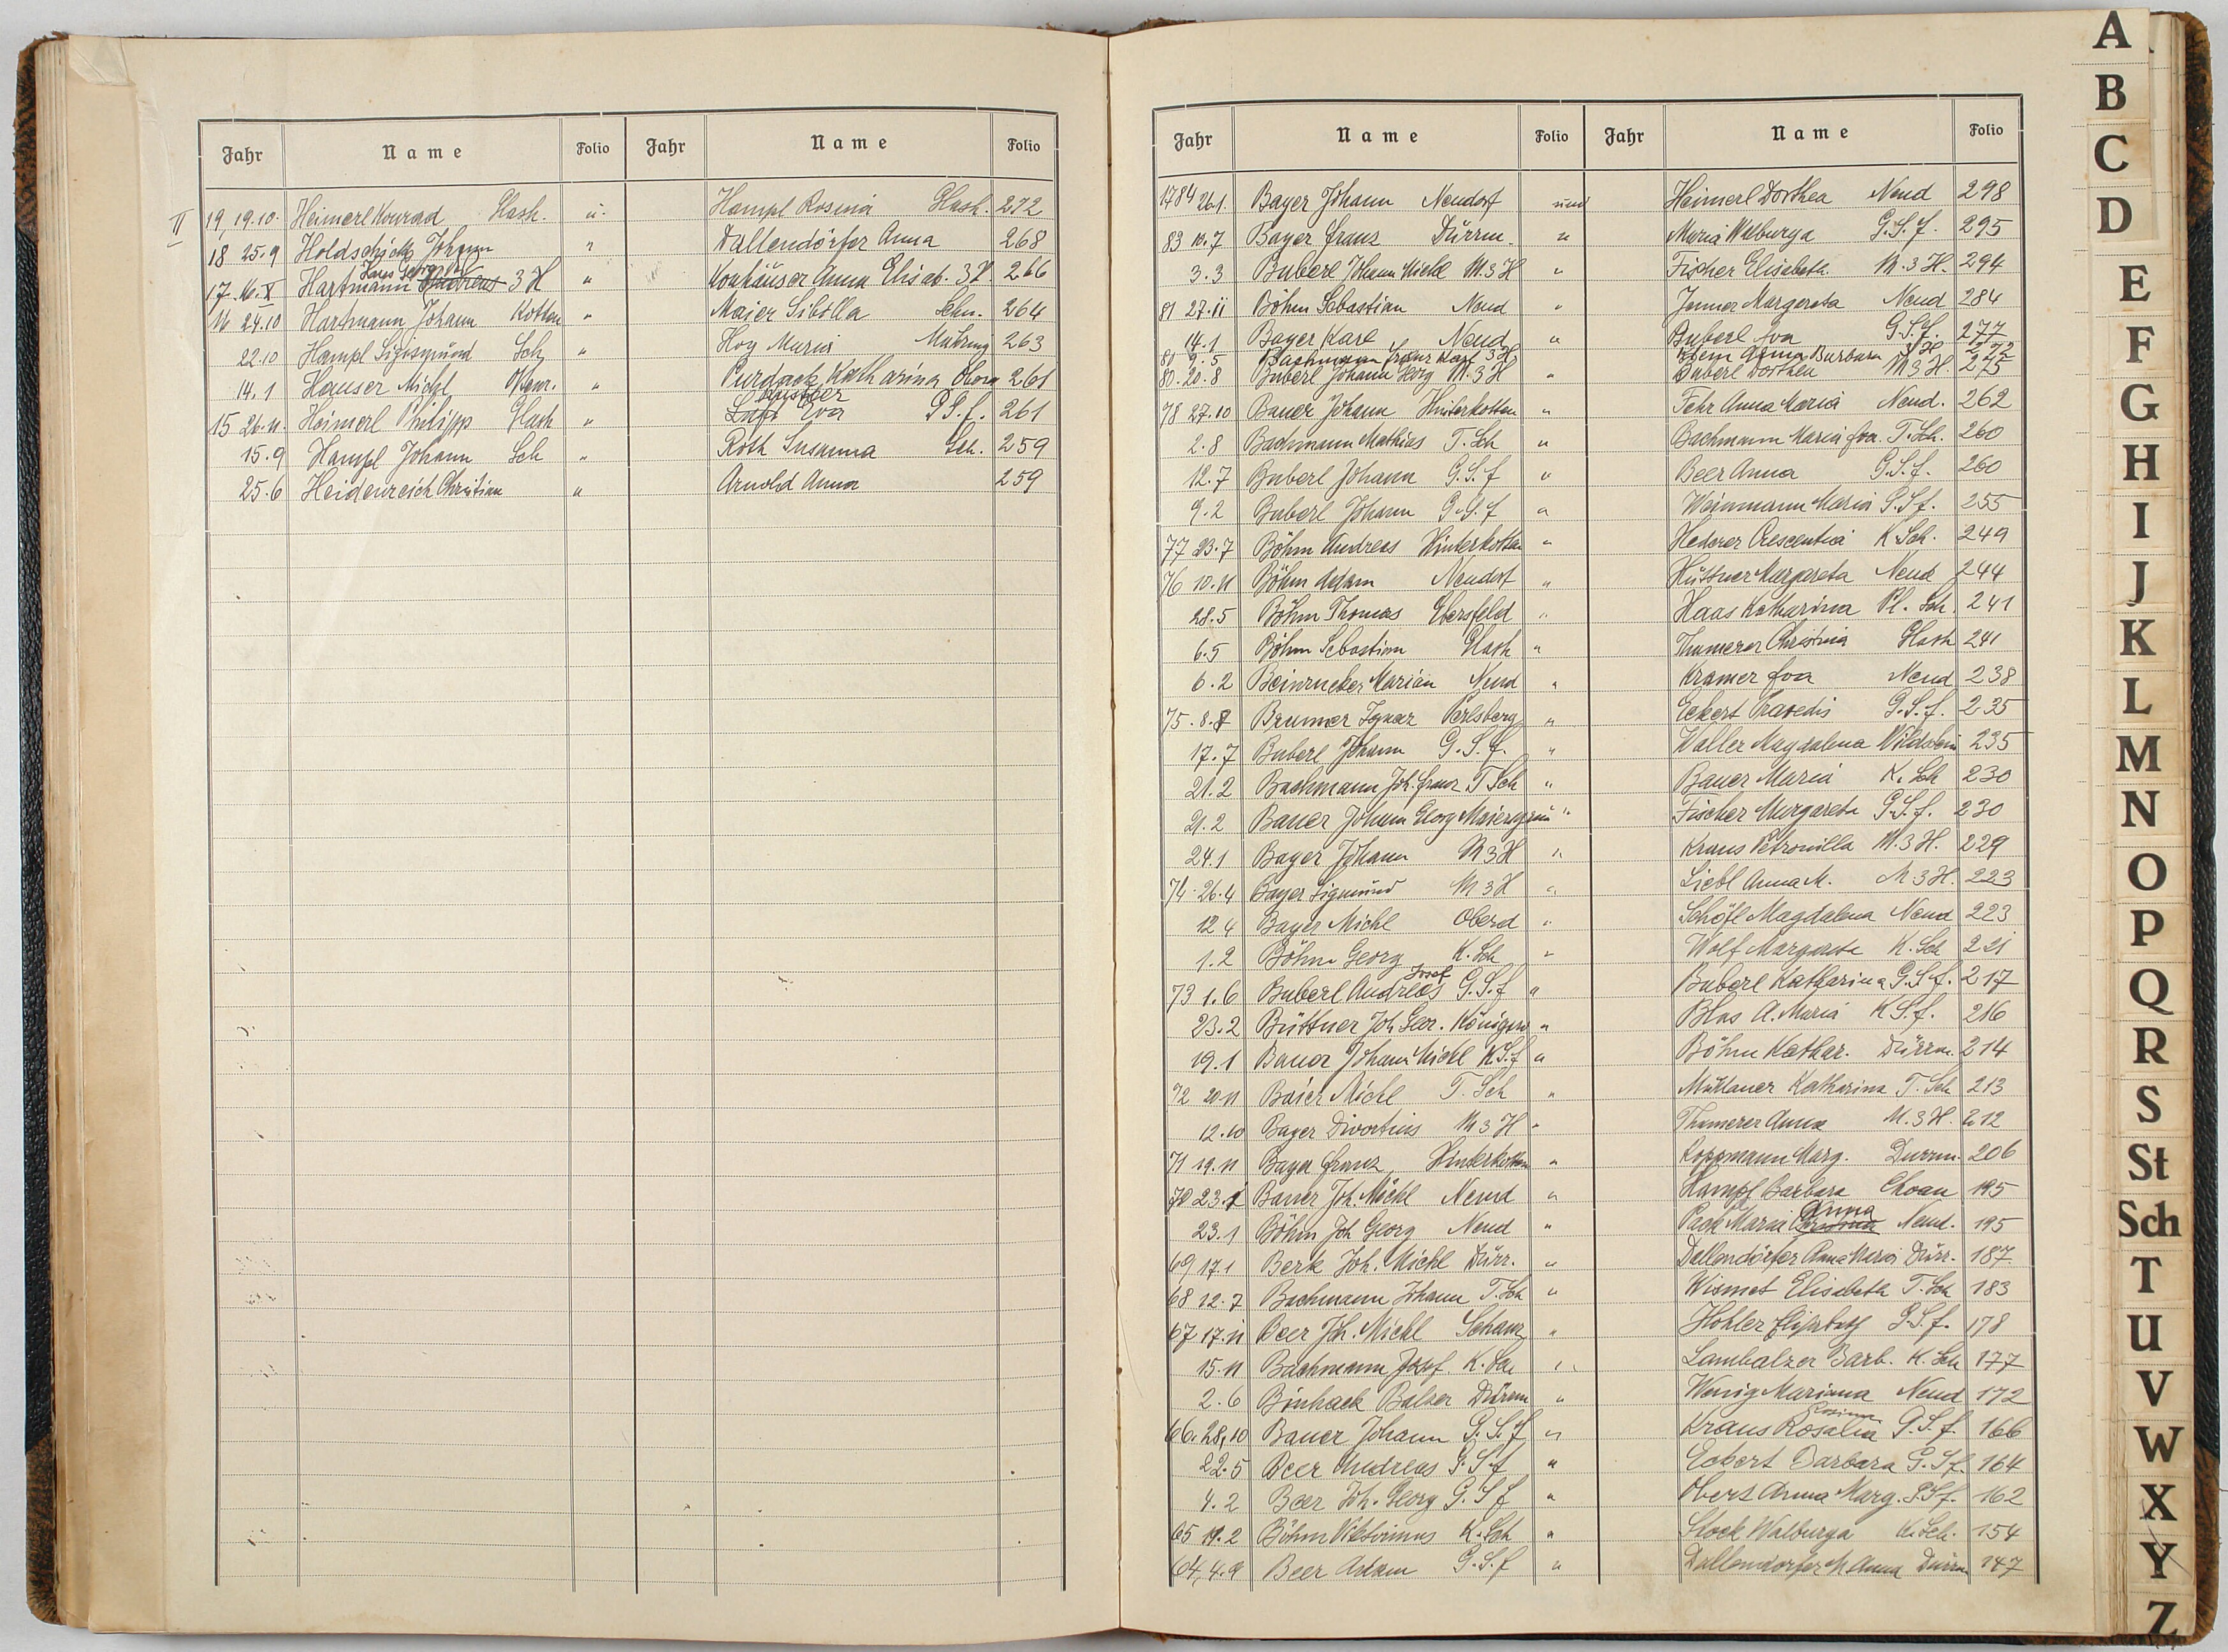 Jahr Name Folio Jahr Name Folio
II 19, 19.10. Heimerl Konrad Hash. u. Hampl Rosina Hash. 272
18 25.9 Holdschick Johann " Dallendörfer Anna 268
Hans Georg
17. 16.X Hartmann Andreas 3 H " Anna Elisab. 3H. 266
16 24.10 Hartmann Johann Kotten " Maier Sibilla Schn. 264
22.10 Hampl Sigismund Sch " Hoy Maria Mähring 263
14.1 Hauser Michl " Purdack Katharina 261
15 26.11. Heimerl Philipp Hash " Eva G.S.f. 261
15.9 Hampl Johann Sch " Roth Susanna Sch. 259
25.6 Heidenreich Christian " Arnold Anna 259
Jahr Name Folio Jahr Name Folio
1784 26.1. Bayer Johann Neudorf und Heimerl Dorthea Neud 298
83 10.7 Bayer Franz Dürrm. " Maria Walburga G.S.f. 295
3.3 Buberl Johann Michl M.3 H " Fischer Elisabeth M.3 H. 294
81 27.11 Böhm Sebastian Neud " Jenner Margareta Neud 284
14.1 Bayer Karl Neud " Buberl Eva G.S.f. 277
81 9.5 Bachmann Franz Karl 3 H Anna Barbara 3 H 272
80. 20.8 Buberl Johann Georg M.3 H " Buberl Dorthea M 3 H. 275
78 27.10 Bauer Johann Hinterkotten " Fehr Anna Maria Neud. 262
2.8 Bachmann Mathias T. Sch " Bachmann Maria Eva T. Sch. 260
12.7 Buberl Johann G.S.f " Beer Anna G.S.f. 260
9.2 Buberl Johann G.S.f " Weinmann Maria G.S.f. 255
77 23.7 Böhm Andreas Hinterkotten " Hederer Crescentia K Sch. 249
76 10.11 Böhm Adam Neudorf " Hüttner Margareta Neud 244
28.5 Böhm Thomas Ebersfeld " Haas Katharina Pl. Sch. 241
6.5 Böhm Sebastian Hash " Thamerer Christina Hash 241
6.2 Marian Neud " Kramer Eva Neud 238
75. 8.8 Brunner Ignaz Perlsberg " Eckert Praxedis G.S.f. 235
17.7 Buberl Johann G.S.f. " Waller Magdalena Wildstein 235
21.2 Bachmann Joh. Franz T Sch " Bauer Maria K. Sch 230
21.2 Bauer Johann Georg Maiersgrün " Fischer Margareta G.S.f. 230
24.1 Bayer Johann M 3 H " Kraus Petronilla M.3 H. 229
74. 26.4 Bayer Sigmund M 3 H " Liebl Anna M. M 3 H. 223
12 4 Bayer Michl Oberd " Schöfl Magdalena Neud 223
1.2 Böhm Georg K. Sch " Wolf Margareta K. Sch 221
Josef
73 1.6 Buberl Andreas G.S.f " Buberl Katharina G.S.f. 217
23.2 Büttner Joh. Geor. Königsw " Blas A. Maria K S.f. 216
19.1 Bauer Johann Michl K S.f " Böhm Kathar. Dürrm. 214
72 20 11 Baier Michl T. Sch " Müllauer Katharina T. Sch 213
12.10 Bayer Divortius M 3 H " Thamerer Anna M. 3 H. 212
71 19.11 Bayer Franz Hinterkotten " Koppmann Marg. Dürrm. 206
70 23.1 Bauer Joh. Michl Neud " Hampl Barbara 195
Anna
23.1 Böhm Joh Georg Neud " Maria Neud. 195
69 17.1 Berk Joh. Michl Dürr. " Dallendörfer Anna Maria Dürr. 187
68 12.7 Bachmann Johann T. Sch " Wismet Elisabeth T. Sch 183
67 17.11 Beer Joh. Michl Schanz " Hohler Elisabeth G.S.f. 178
15.11 Bachmann Josef K. Sch " Lambalzer Barb. K. Sch 177
2.6 Binhack Balzer Dürrm " Wenig Mariana Neud 172
Rosina
66. 28,10 Bauer Johann G.S.f " Kraus Rosalia G.S.f. 166
22.5 Beer Andreas G.S.f " Eckert Barbara G.S.f. 164
4.2 Beer Joh. Georg G.S.f " Anna Marg. G.S.f. 162
65 19.2 Böhm Viktorinus K. Sch " Stock Walburga K. Sch. 154
64, 4.9 Beer Adam G.S.f " Dallendörfer M Anna Dürrm 147
A
B
C
D
E
F
G
H
I
J
K
L
M
N
O
P
Q
R
S
St
Sch
T
U
V
W
X
Y
Z